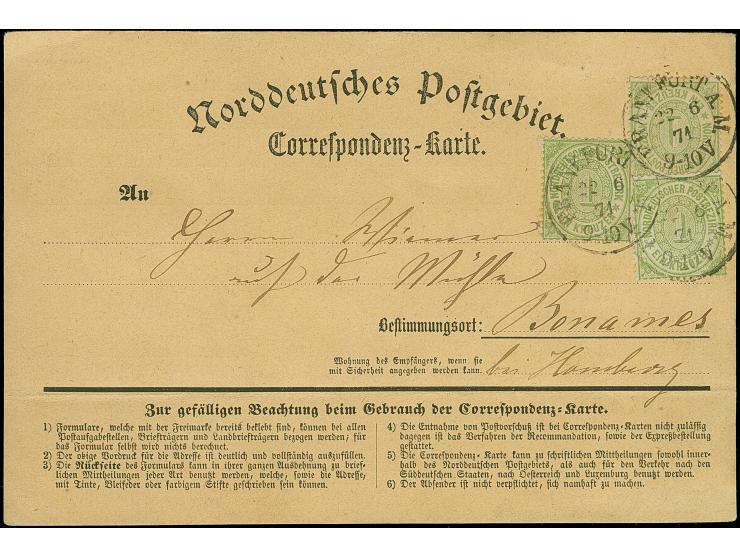 Norddeutsches Postgebiet.
Correspondenz-Karte.
FRANKFURT A.M.
22 6
71
9-10V
FRANKFURT
22 6
71
9-10V
71
NORDDEUTSCHER POSTBEZIRK
1
EIN KREUZER
An
Herrn Wiemer
auf der Mühle
Bestimmungsort: Bonames
Wohnung des Empfängers, wenn sie
mit Sicherheit angegeben werden kann.
bei Homberg
Zur gefälligen Beachtung beim Gebrauch der Correspondenz-Karte.
1) Formulare, welche mit der Freimarke bereits beklebt sind, können bei allen
Postaufgabestellen, Briefträgern und Landbriefträgern bezogen werden; für
das Formular selbst wird nichts berechnet.
2) Der obige Vordruck für die Adresse ist deutlich und vollständig auszufüllen.
3) Die Rückseite des Formulars kann in ihrer ganzen Ausdehnung zu brief-
lichen Mittheilungen jeder Art benutzt werden, welche, sowie die Adresse,
mit Tinte, Bleifeder oder farbigem Stifte geschrieben sein können.
4) Die Entnahme von Postvorschuß ist bei Correspondenz-Karten nicht zulässig
dagegen ist das Verfahren der Recommandation, sowie der Expreßbestellung
gestattet.
5) Die Correspondenz-Karte kann zu schriftlichen Mittheilungen sowohl inner-
halb des Norddeutschen Postgebiets, als auch für den Verkehr nach den
Süddeutschen Staaten, nach Oesterreich und Luxemburg benutzt werden.
6) Der Absender ist nicht verpflichtet, sich namhaft zu machen.